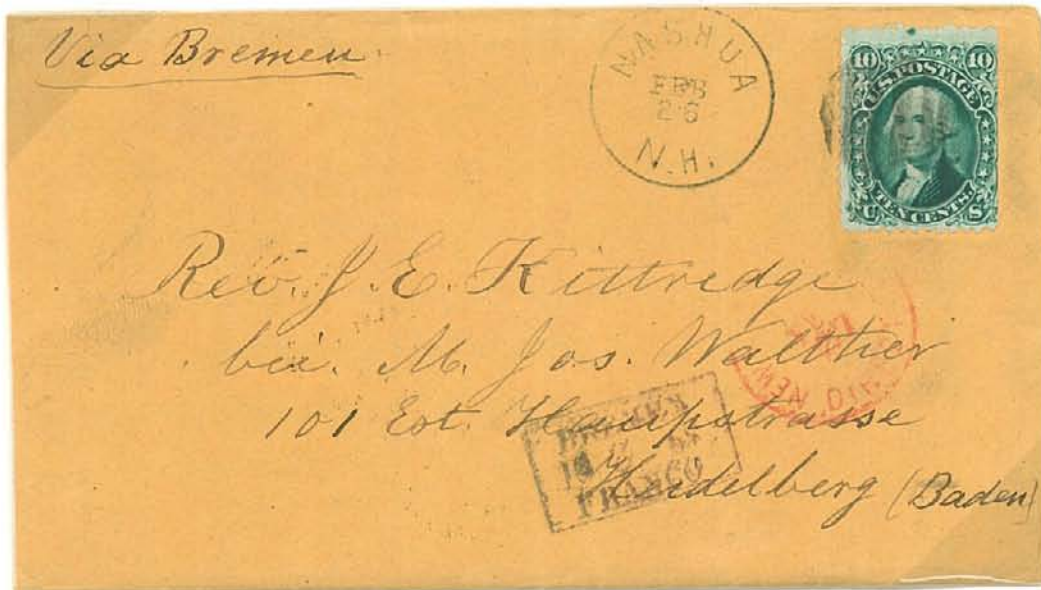 Via Bremen
NASHUA
FEB
26
N.H.
10 10
U.S. POSTAGE
TEN CENTS.
U S
Rev. J. E. Kittredge
M. Jos. Walther
101 Est. Haupstrasse
Heidelberg (Baden)
BREMEN
FRANCO
NEW